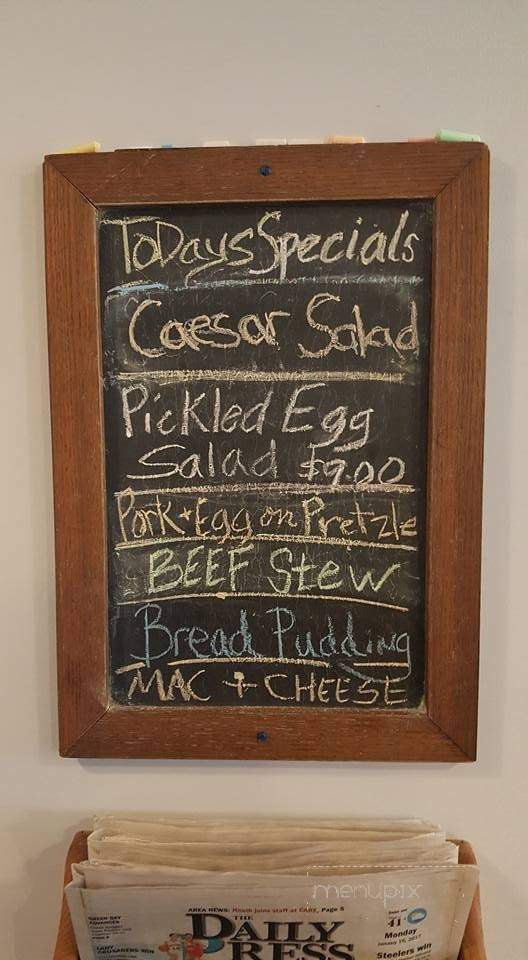 ToDays Specials
Caesar Salad
Pickled Egg
Salad $7.00
Pork + Egg on Pretzle
BEEF Stew
Bread Pudding
MAC + CHEESE
menupix
AREA NEWS: Hiroth joins staff at CARE, Page 5
GREEN BAY
ADVANCES
LADY
CRUSADERS WIN
THE
DAILY
PRESS
41°
Monday
January 16, 2017
Steelers win